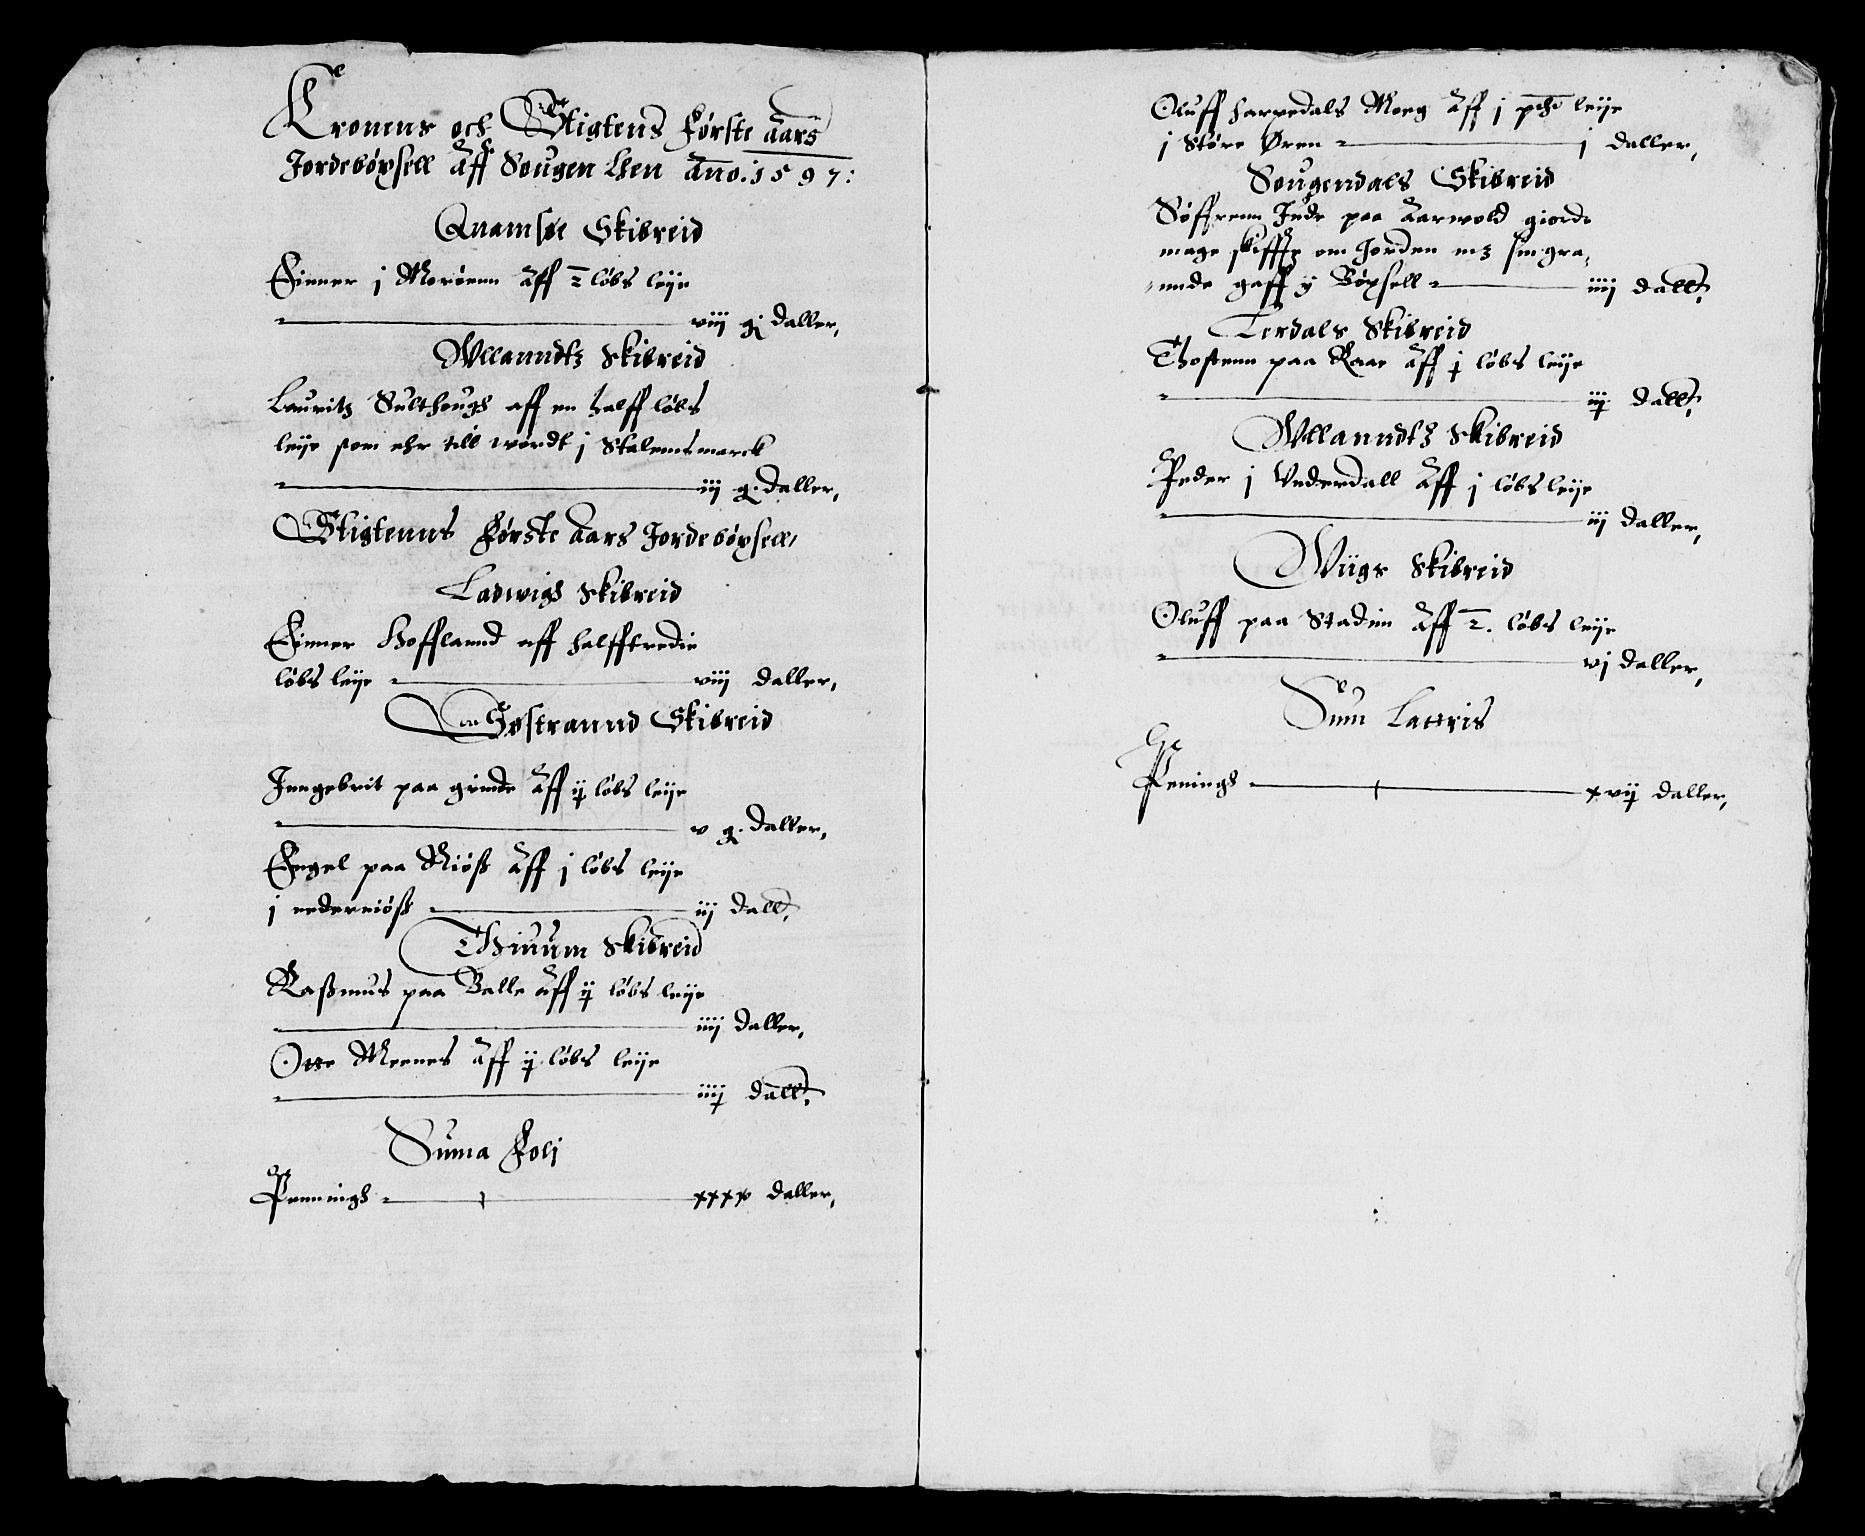 Kronens och Stigtens første aars
Jordebøxsell aff Sougen Lhen Ano. 1597:
Quamsøe Skibreid
Einer j Morøenn aff 2 løbs leije
viij g: daller,
Wllanndtz Skibreid
Lauritz Sulthough aff en halff løbs
leije som ehr till wordt j Stalemsmarck
iij g. daller,
Stigtenns første aars Jordebøxsell,
Ladwigs Skibreid
Einer Hofflannd aff halfftredie
løbs leije viij daller,
Systrannd Skibreid
Inngebrit paa grinde aff ij løbs leije
v g. daller,
Engel paa Niøß aff j løbs leije
j nederniøß iij dall,
Thinum Skibreid
Raßmus paa Balle aff ij løbs leije
iiij daller,
Otte Meenes aff ij løbs leije
iiij dall,
Suma folj
Penningh xxxx daller,
Oluff harredals Moeg aff j pch leije
j Støre Øren j daller,
Sougendals Skibreid
Søffrenn Inde paa Aarwold giorde
mage skiffte om Jorden mz sin gra,
nnde gaff y Bøxsell iiij dall,
Lerdals Skibreid
Thostenn paa Raae aff j løbs leije
iij dall,
Wllanndtz Skibreid
Peder j Underdall aff j løbs leije
iij daller,
Wiigs Skibreid
Oluff paa Stadim aff 2. løbs leije
vj daller,
Sum Lateris
Peningh xvij daller,